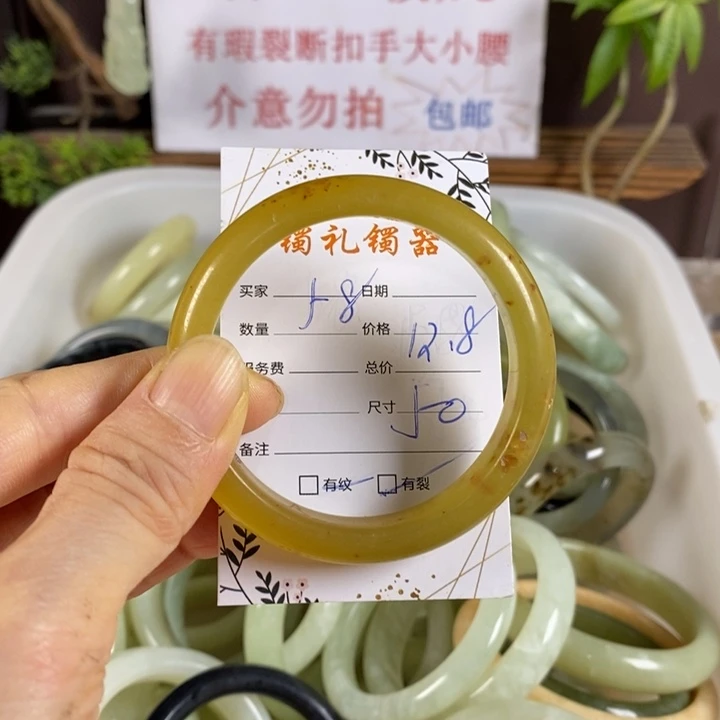 有瑕裂断扣手大小腰
介意勿拍 包邮
镯礼镯器
买家 58 日期
数量 价格 12.8
服务费 总价
尺寸 50
备注
有纹 有裂